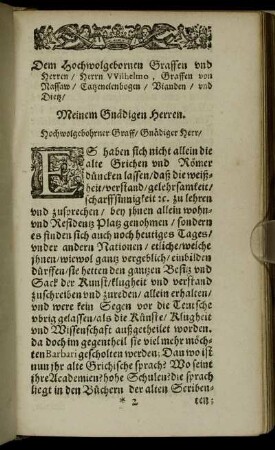 Dem Hochwolgebornen Graffen vnd
Herren / Herrn VVilhelmo, Graffen von
Nassaw / Catzenelenbogen / Vianden / vnd
Dietz /
Meinem Gnädigen Herren.
Hochwolgebohrner Graff / Gnädiger Herr /
ES haben sich nicht allein die
alte Grichen vnd Römer
düncken lassen / daß die weiß-
heit / verstand / gelehrsamkeit /
scharffsinnigkeit ꝛc. zu lehren
vnd zusprechen / bey jhnen allein wohn-
vnd Residentz Platz genomen / sondern
es finden sich auch noch heutiges Tages /
vnder andern Nationen / etliche / welche
jhnen / wiewol gantz vergeblich / einbilden
dürffen / sie hetten den gantzen Besitz vnd
Sack der Kunst / klugheit vnd verstand
zuschreiben vnd zureden / allein erhalten /
vnd were kein Segen vor die Teutsche
vbrig gelassen / als die Künste / Klugheit
vnd Wissenschaft aufgetheilet worden.
da doch im gegentheil sie viel mehr möch-
ten Barbari gescholten werden. Dan wo ist
nun jhr alte Grichische sprach? Wo seint
jhre Academien? hohe Schulen? die sprach
liegt in den Büchern der alten Scriben-
* 2 ten: